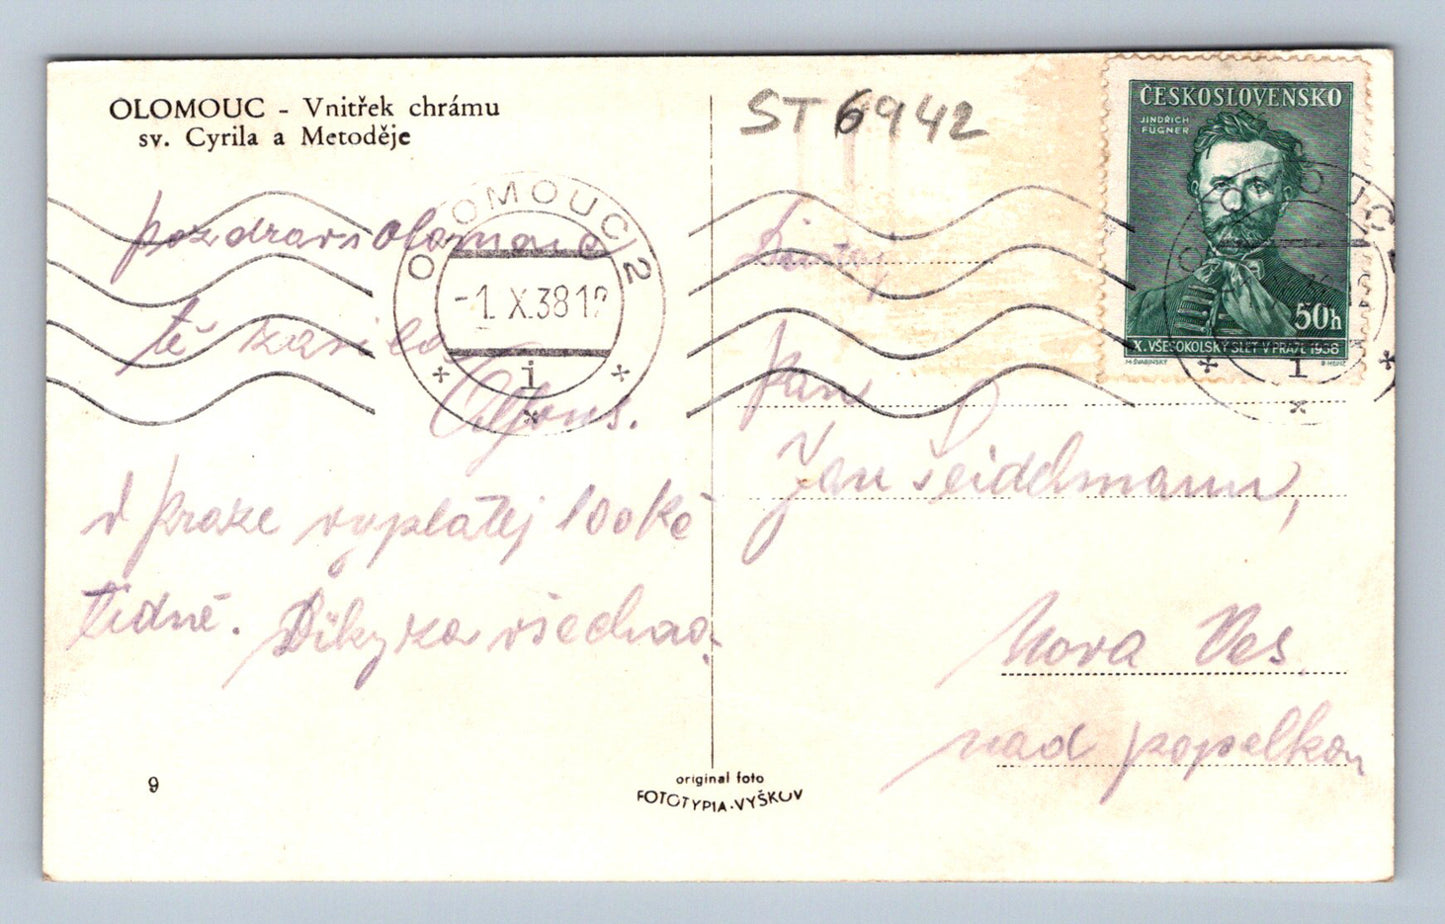 OLOMOUC - Vnitřek chrámu
sv. Cyrila a Metoděje
ST 6942
ČESKOSLOVENSKO
JINDŘICH
FÜGNER
50h
X. VŠESOKOLSKÝ SLET V PRAZE 1938
OLOMOUC 2
-1. X. 38 12
i
pozdrav s Olomouce
tě
Alfons.
V Praze vyplatěj 100 Kč
tidně. Díky za všechno.
Pan
Jan Seidelmann,
Nova Ves
nad popelkou
9
original foto
FOTOTYPIA-VYŠKOV